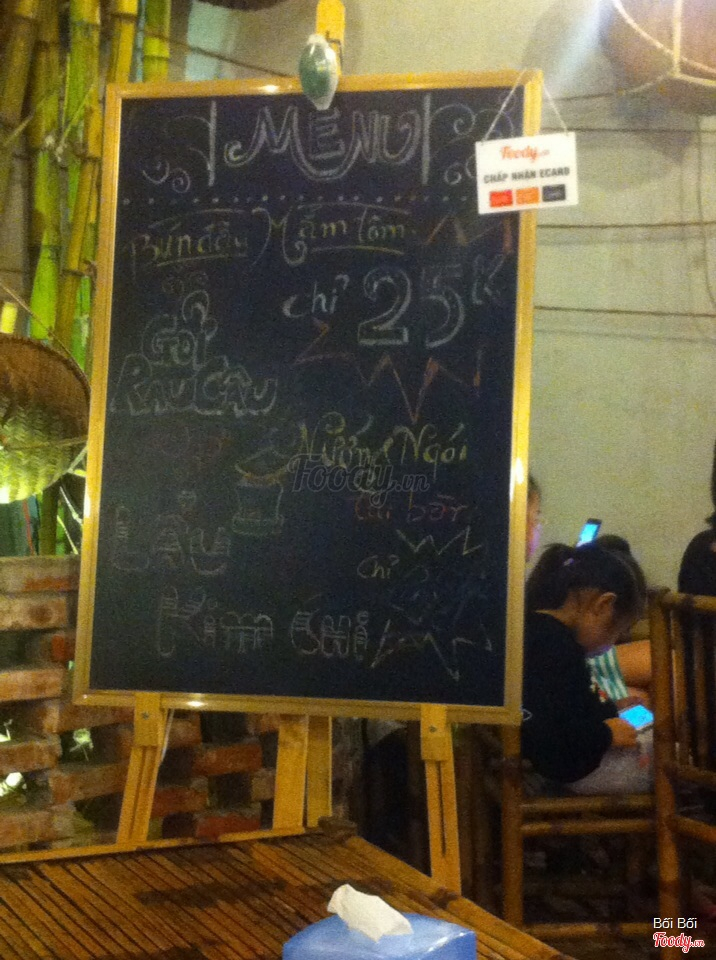 MENU
Foody.vn
CHẤP NHẬN ECARD
Bún đậu Mắm tôm
chỉ 25K
Gỏi
RAU CÂU
Nướng Ngói
Foody.vn
LẨU
chỉ
Kim Chi
Bối Bối
Foody.vn